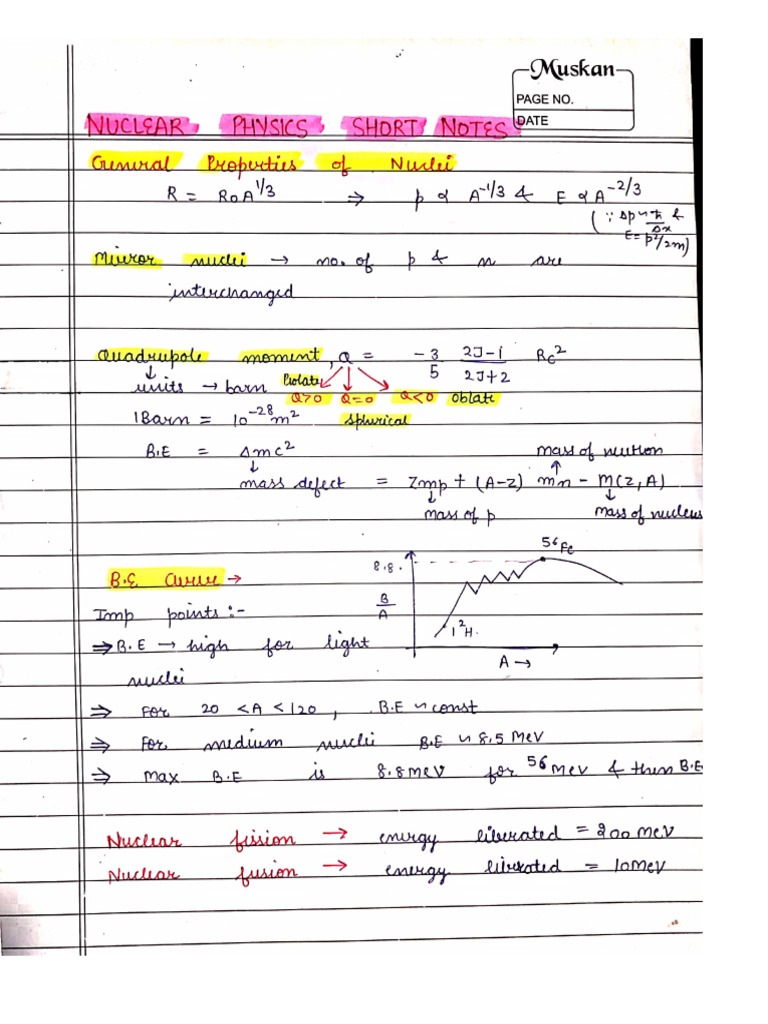 Muskan
PAGE NO.
DATE
NUCLEAR PHYSICS SHORT NOTES
General Properties of Nuclei
R = R₀A^1/3 ⇒ p ∝ A^-1/3 & E ∝ A^-2/3
(∵ Δp ~ ħ/Δx &
E = p²/2m)
Mirror nuclei → no. of p & n are
interchanged
Quadrupole moment, Q = -3/5 (2J-1)/(2J+2) Rc²
units → barn Prolate Q>0 Q=0 Q<0 Oblate
1Barn = 10^-28 m² spherical
B.E = Δmc² mass of neutron
mass defect = Zmp + (A-Z) mn - M(Z,A)
mass of p mass of nucleus
B.E Curve →
8.8. ⁵⁶Fe
B/A
1²H.
A →
Imp points :-
⇒ B.E → high for light
nuclei
⇒ For 20 < A < 120, B.E ~ const
⇒ For medium nuclei B.E ~ 8.5 MeV
⇒ max B.E is 8.8 MeV for ⁵⁶MeV & then B.E
Nuclear fission → energy liberated = 200 MeV
Nuclear fusion → energy liberated = 10MeV